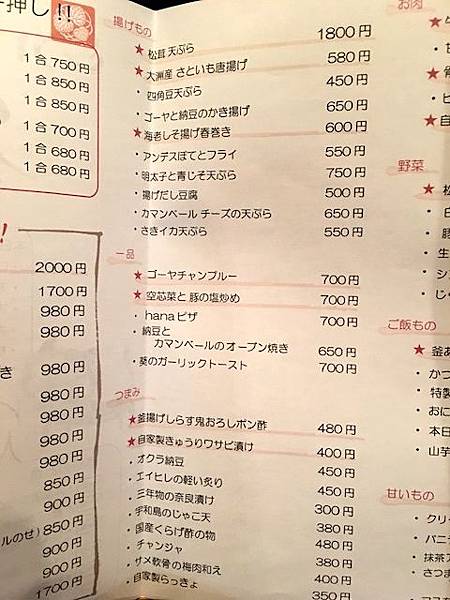 押し!!
1合 750円
1合 850円
1合 850円
1合 700円
1合 680円
1合 680円
!
2000円
1700円
980円
980円
き 980円
980円
980円
980円
980円
850円
900円
ルのせ) 850円
900円
900円
1700円
揚げもの
★ 松茸 天ぷら 1800円
★ 大洲産 さといも唐揚げ 580円
・四角豆天ぷら 450円
・ゴーヤと納豆のかき揚げ 650円
★ 海老しそ揚げ春巻き 600円
・アンデスぽてとフライ 550円
・明太子と青じそ天ぷら 750円
・揚げだし豆腐 500円
・カマンベール チーズの天ぷら 650円
・さきイカ天ぷら 550円
一品
★ ゴーヤチャンプルー 700円
★ 空芯菜と豚の塩炒め 700円
・hanaピザ 700円
・納豆と
カマンベールのオーブン焼き 650円
・葵のガーリックトースト 700円
つまみ
★釜揚げしらす鬼おろしポン酢 480円
★自家製きゅうりワサビ漬け 400円
・オクラ納豆 450円
・エイヒレの軽い炙り 450円
・三年物の奈良漬け 300円
・宇和島のじゃこ天 380円
・国産くらげ酢の物 480円
・チャンジャ 380円
・サメ軟骨の梅肉和え 400円
・自家製らっきょ 350円
お肉
★
・
★
・
★自
野菜
★ 松
・
・
・生
・シ
・じ
ご飯もの
★ 釜あ
・かつ
・特製
・おに
・本日
・山芋
甘いもの
・クリ
・バニ
・抹茶
・さつま